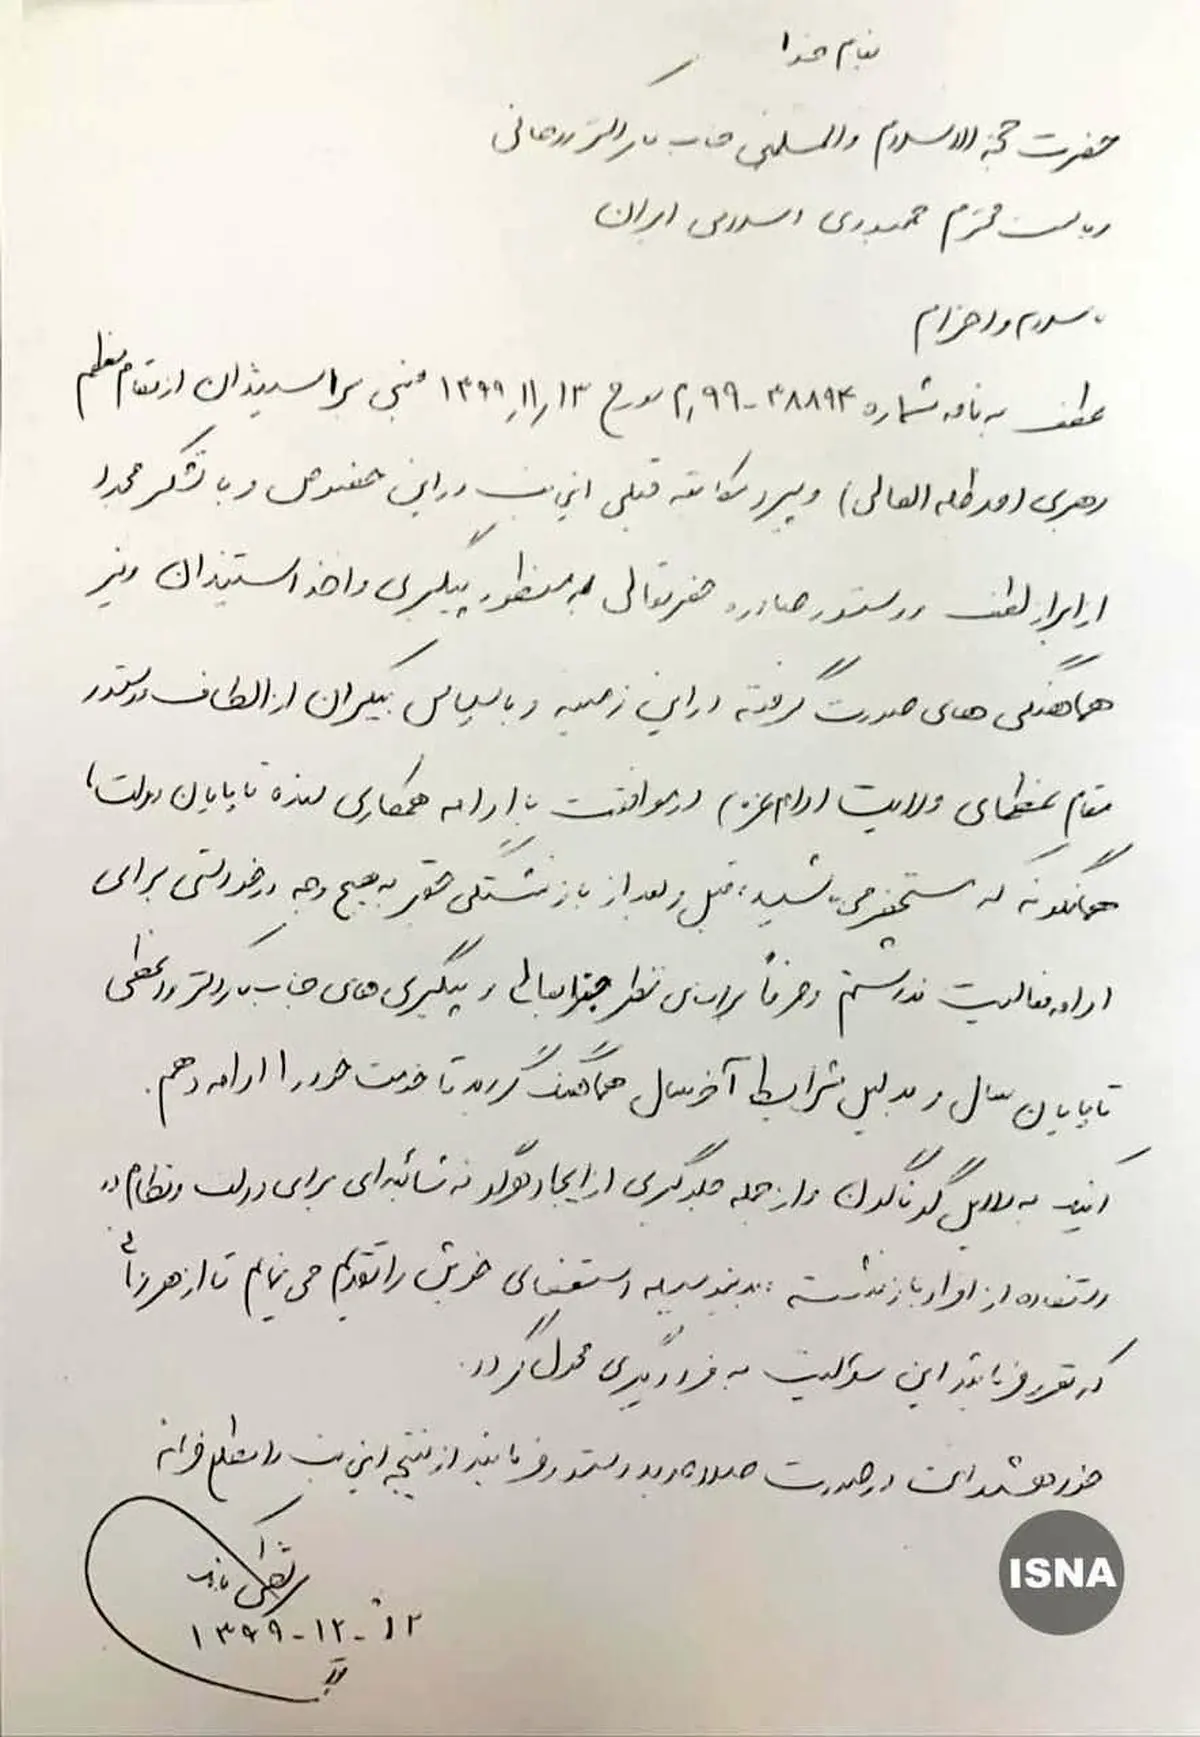 بنام خدا
حضرت حجة الاسلام والمسلمین جناب آقای دکتر روحانی
ریاست محترم جمهوری اسلامی ایران
با سلام و احترام
عطف به نامه شماره ۳۸۸۹۴-۹۹/م مورخ ۱۳۹۹/۱۱/۱۳ مبنی بر استیذان از مقام معظم
رهبری (مدظله العالی) و پیرو مکاتبه قبلی این‌جانب در این خصوص و با تشکر مجدد
از ابراز لطف و دستور صادره حضرتعالی به منظور پیگیری و اخذ استیذان و نیز
هماهنگی های صورت گرفته در این زمینه و با سپاس بیکران از الطاف و دستور
مقام عظمای ولایت (دام عزه) در موافقت با ادامه همکاری بنده تا پایان دولت،
همانگونه که مستحضر می باشید، قبل و بعد از بازنشستگی حقیر به هیچ وجه درخواستی برای
ادامه فعالیت نداشتم و صرفاً بر اساس نظر جنابعالی و پیگیری های جناب آقای دکتر واعظی
تا پایان سال و بدلیل شرایط آخر سال هماهنگ گردید تا خدمت خود را ادامه دهم.
اینک به دلایل گوناگون و از جمله جلوگیری از ایجاد هرگونه شائبه‌ای برای دولت و نظام در
استفاده از افراد بازنشسته، بدینوسیله استعفای خویش را تقدیم می نمایم تا از هر زمانی
که مقرر فرمایید این مسئولیت به فرد دیگری محول گردد.
خواهشمند است در صورت صلاحدید دستور فرمایید از نتیجه این‌جانب را مطلع فرمایند
با تشکر
۱۳۹۹-۱۲-۱۲
ISNA